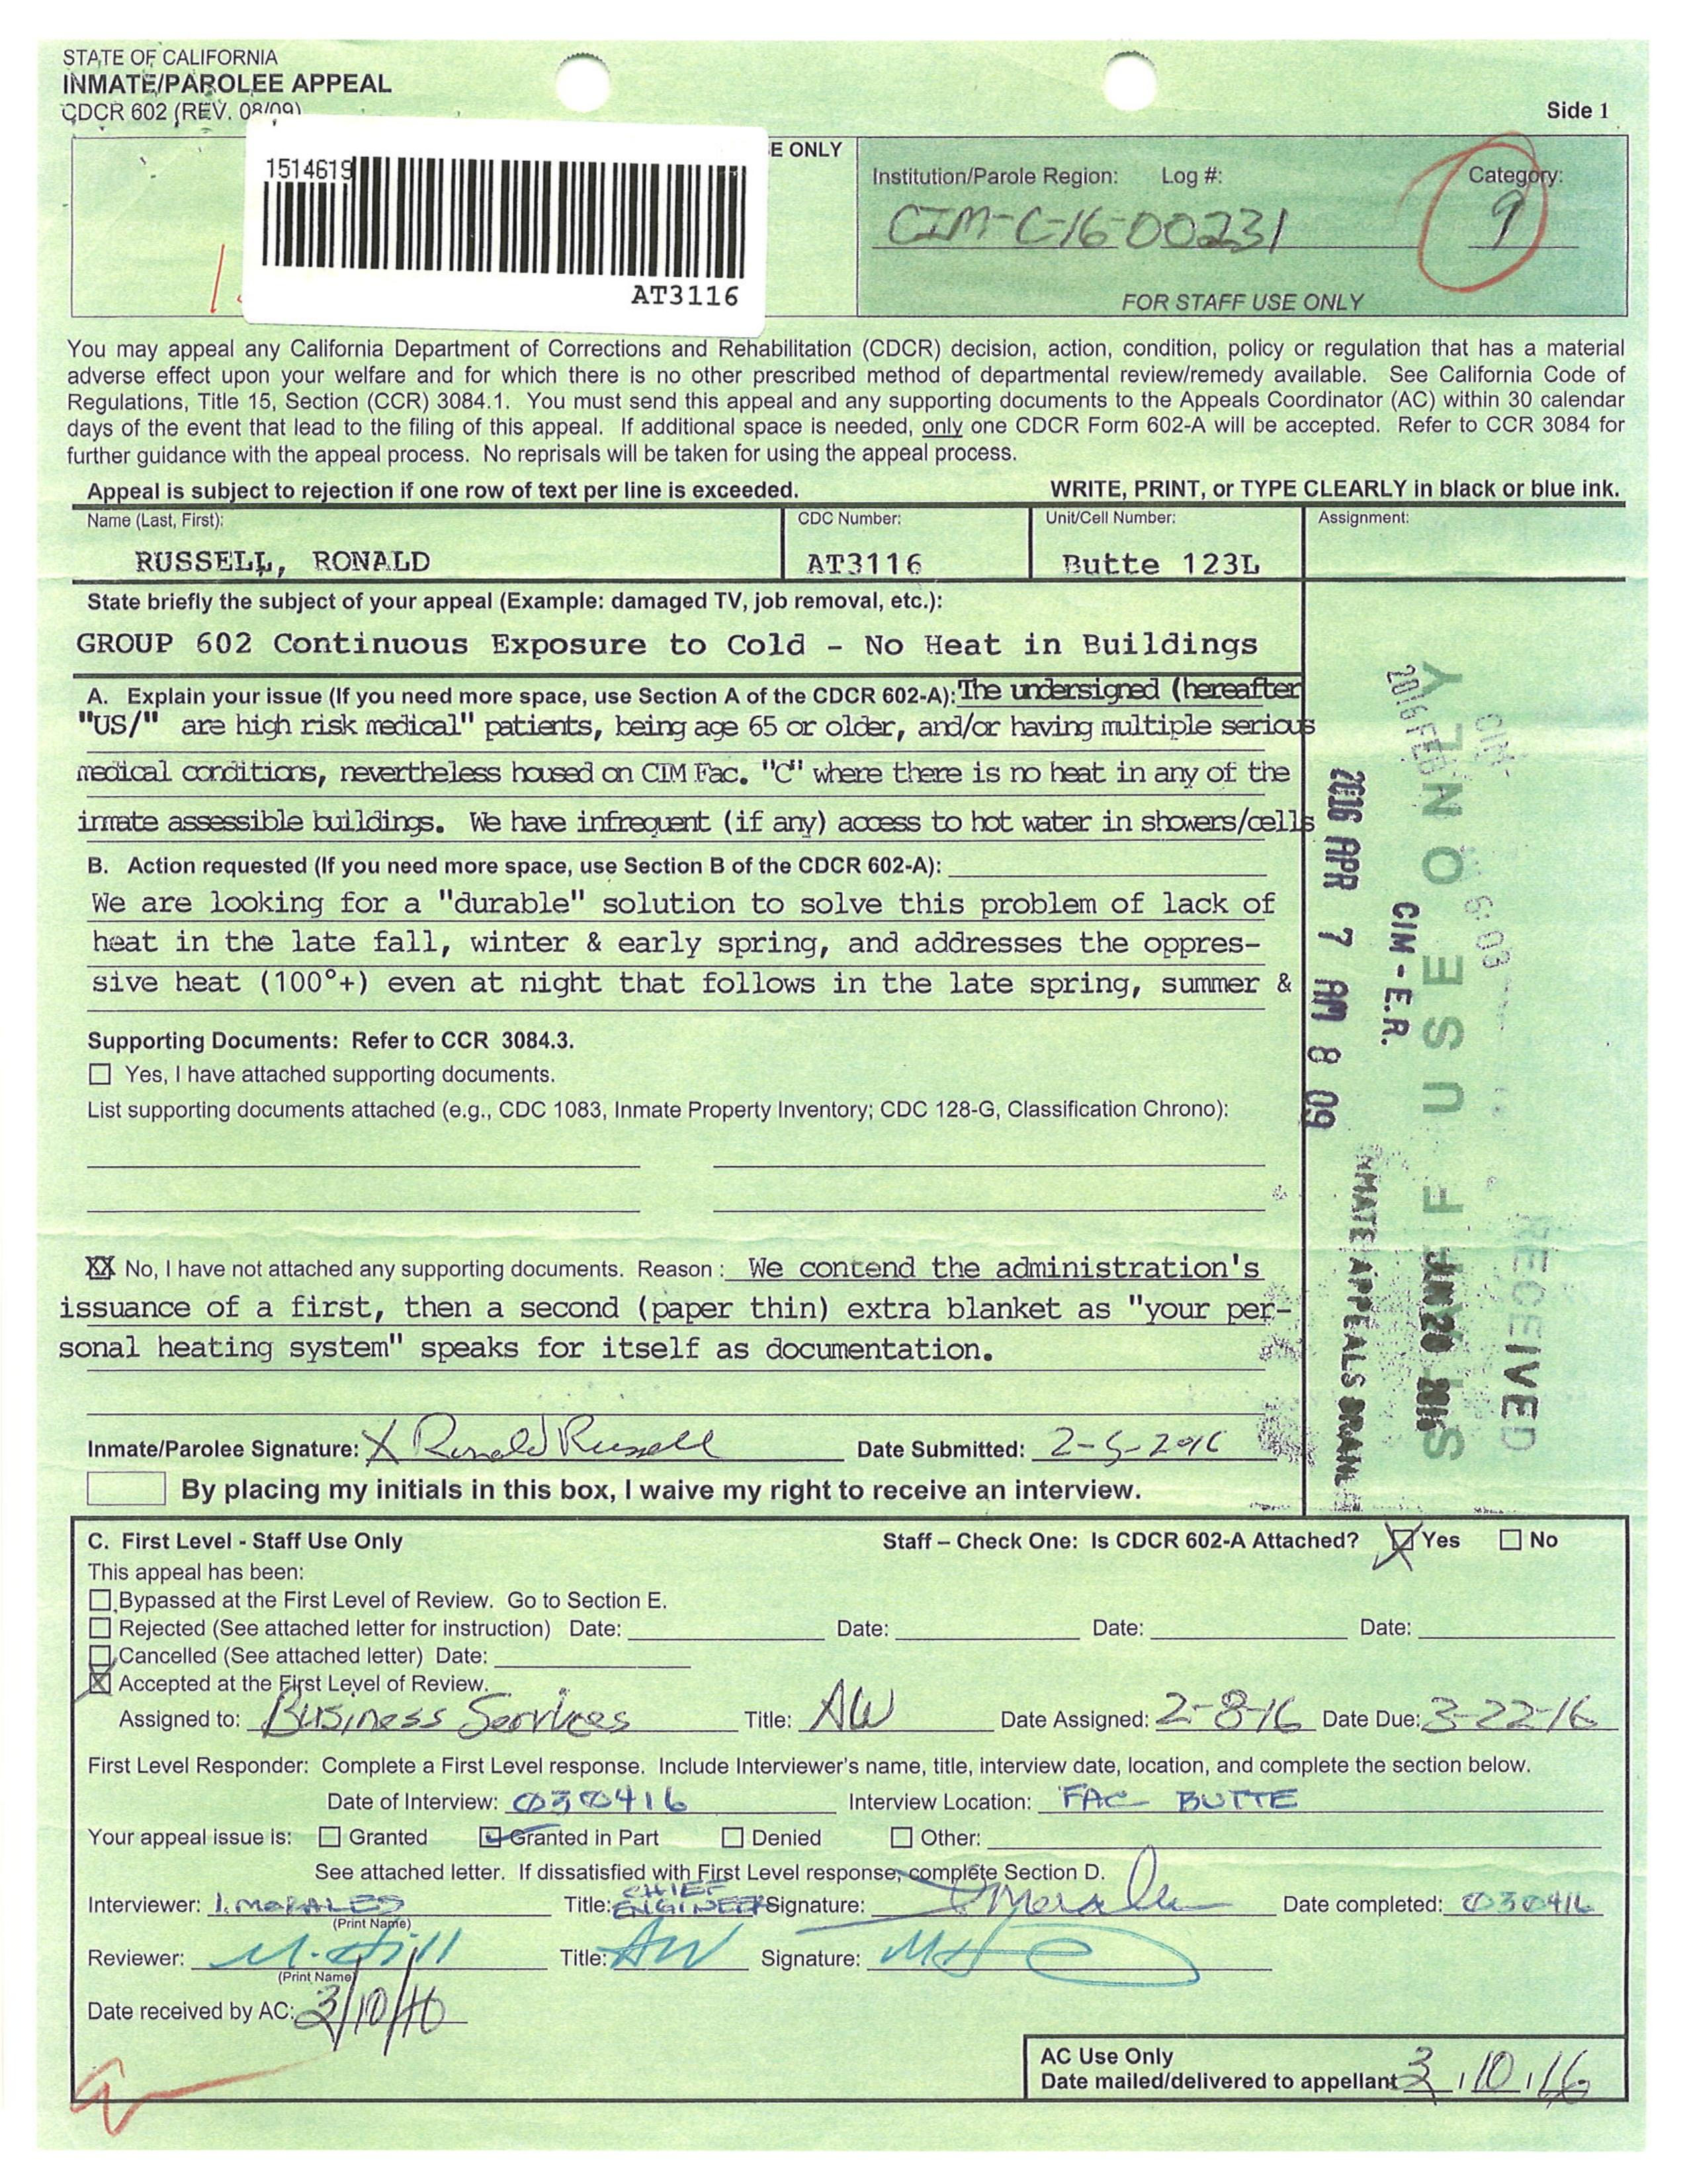 STATE OF CALIFORNIA
INMATE/PAROLEE APPEAL
CDCR 602 (REV. 08/09)
Side 1
E ONLY
1514619
AT3116
Institution/Parole Region: Log #: Category:
CIM-C-16-00231 9
FOR STAFF USE ONLY
You may appeal any California Department of Corrections and Rehabilitation (CDCR) decision, action, condition, policy or regulation that has a material
adverse effect upon your welfare and for which there is no other prescribed method of departmental review/remedy available. See California Code of
Regulations, Title 15, Section (CCR) 3084.1. You must send this appeal and any supporting documents to the Appeals Coordinator (AC) within 30 calendar
days of the event that lead to the filing of this appeal. If additional space is needed, only one CDCR Form 602-A will be accepted. Refer to CCR 3084 for
further guidance with the appeal process. No reprisals will be taken for using the appeal process.
Appeal is subject to rejection if one row of text per line is exceeded. WRITE, PRINT, or TYPE CLEARLY in black or blue ink.
Name (Last, First): CDC Number: Unit/Cell Number: Assignment:
RUSSELL, RONALD AT3116 Butte 123L
State briefly the subject of your appeal (Example: damaged TV, job removal, etc.):
GROUP 602 Continuous Exposure to Cold - No Heat in Buildings
A. Explain your issue (If you need more space, use Section A of the CDCR 602-A): The undersigned (hereafter
"US/" are high risk medical" patients, being age 65 or older, and/or having multiple serious
medical conditions, nevertheless housed on CIM Fac. "C" where there is no heat in any of the
inmate assessible buildings. We have infrequent (if any) access to hot water in showers/cells
B. Action requested (If you need more space, use Section B of the CDCR 602-A):
We are looking for a "durable" solution to solve this problem of lack of
heat in the late fall, winter & early spring, and addresses the oppres-
sive heat (100°+) even at night that follows in the late spring, summer &
Supporting Documents: Refer to CCR 3084.3.
Yes, I have attached supporting documents.
List supporting documents attached (e.g., CDC 1083, Inmate Property Inventory; CDC 128-G, Classification Chrono):
XX No, I have not attached any supporting documents. Reason : We contend the administration's
issuance of a first, then a second (paper thin) extra blanket as "your per-
sonal heating system" speaks for itself as documentation.
Inmate/Parolee Signature: X Ronald Russell Date Submitted: 2-5-2016
By placing my initials in this box, I waive my right to receive an interview.
STAFF USE ONLY
2016 FEB
CIM-
2016 APR 7 AM 8 09
CIM - E.R.
INMATE APPEALS BRANCH
JUN 20
RECEIVED
C. First Level - Staff Use Only Staff – Check One: Is CDCR 602-A Attached? X Yes No
This appeal has been:
Bypassed at the First Level of Review. Go to Section E.
Rejected (See attached letter for instruction) Date: Date: Date: Date:
Cancelled (See attached letter) Date:
X Accepted at the First Level of Review.
Assigned to: Business Services Title: AW Date Assigned: 2-8-16 Date Due: 3-22-16
First Level Responder: Complete a First Level response. Include Interviewer's name, title, interview date, location, and complete the section below.
Date of Interview: 030416 Interview Location: FAC BUTTE
Your appeal issue is: Granted Granted in Part Denied Other:
See attached letter. If dissatisfied with First Level response, complete Section D.
Interviewer: I. MORALES Title: CHIEF ENGINEER Signature: I Morales Date completed: 030416
(Print Name)
Reviewer: M. Hill Title: AW Signature:
(Print Name)
Date received by AC: 3/10/16
AC Use Only
Date mailed/delivered to appellant 3 / 10 / 16